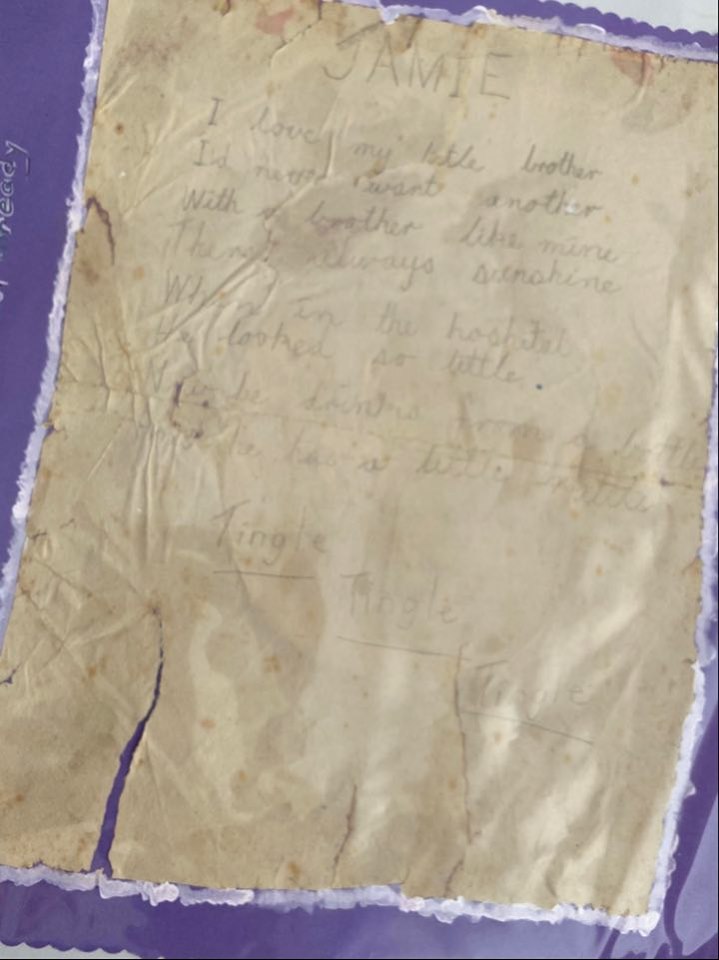 JAMIE
I love my little brother
I'd never want another
With a brother like mine
There's always sunshine
When in the hospital
He looked so little.
he drinks from a bottle
he has a little
Tingle
Tingle
Tingle
ready